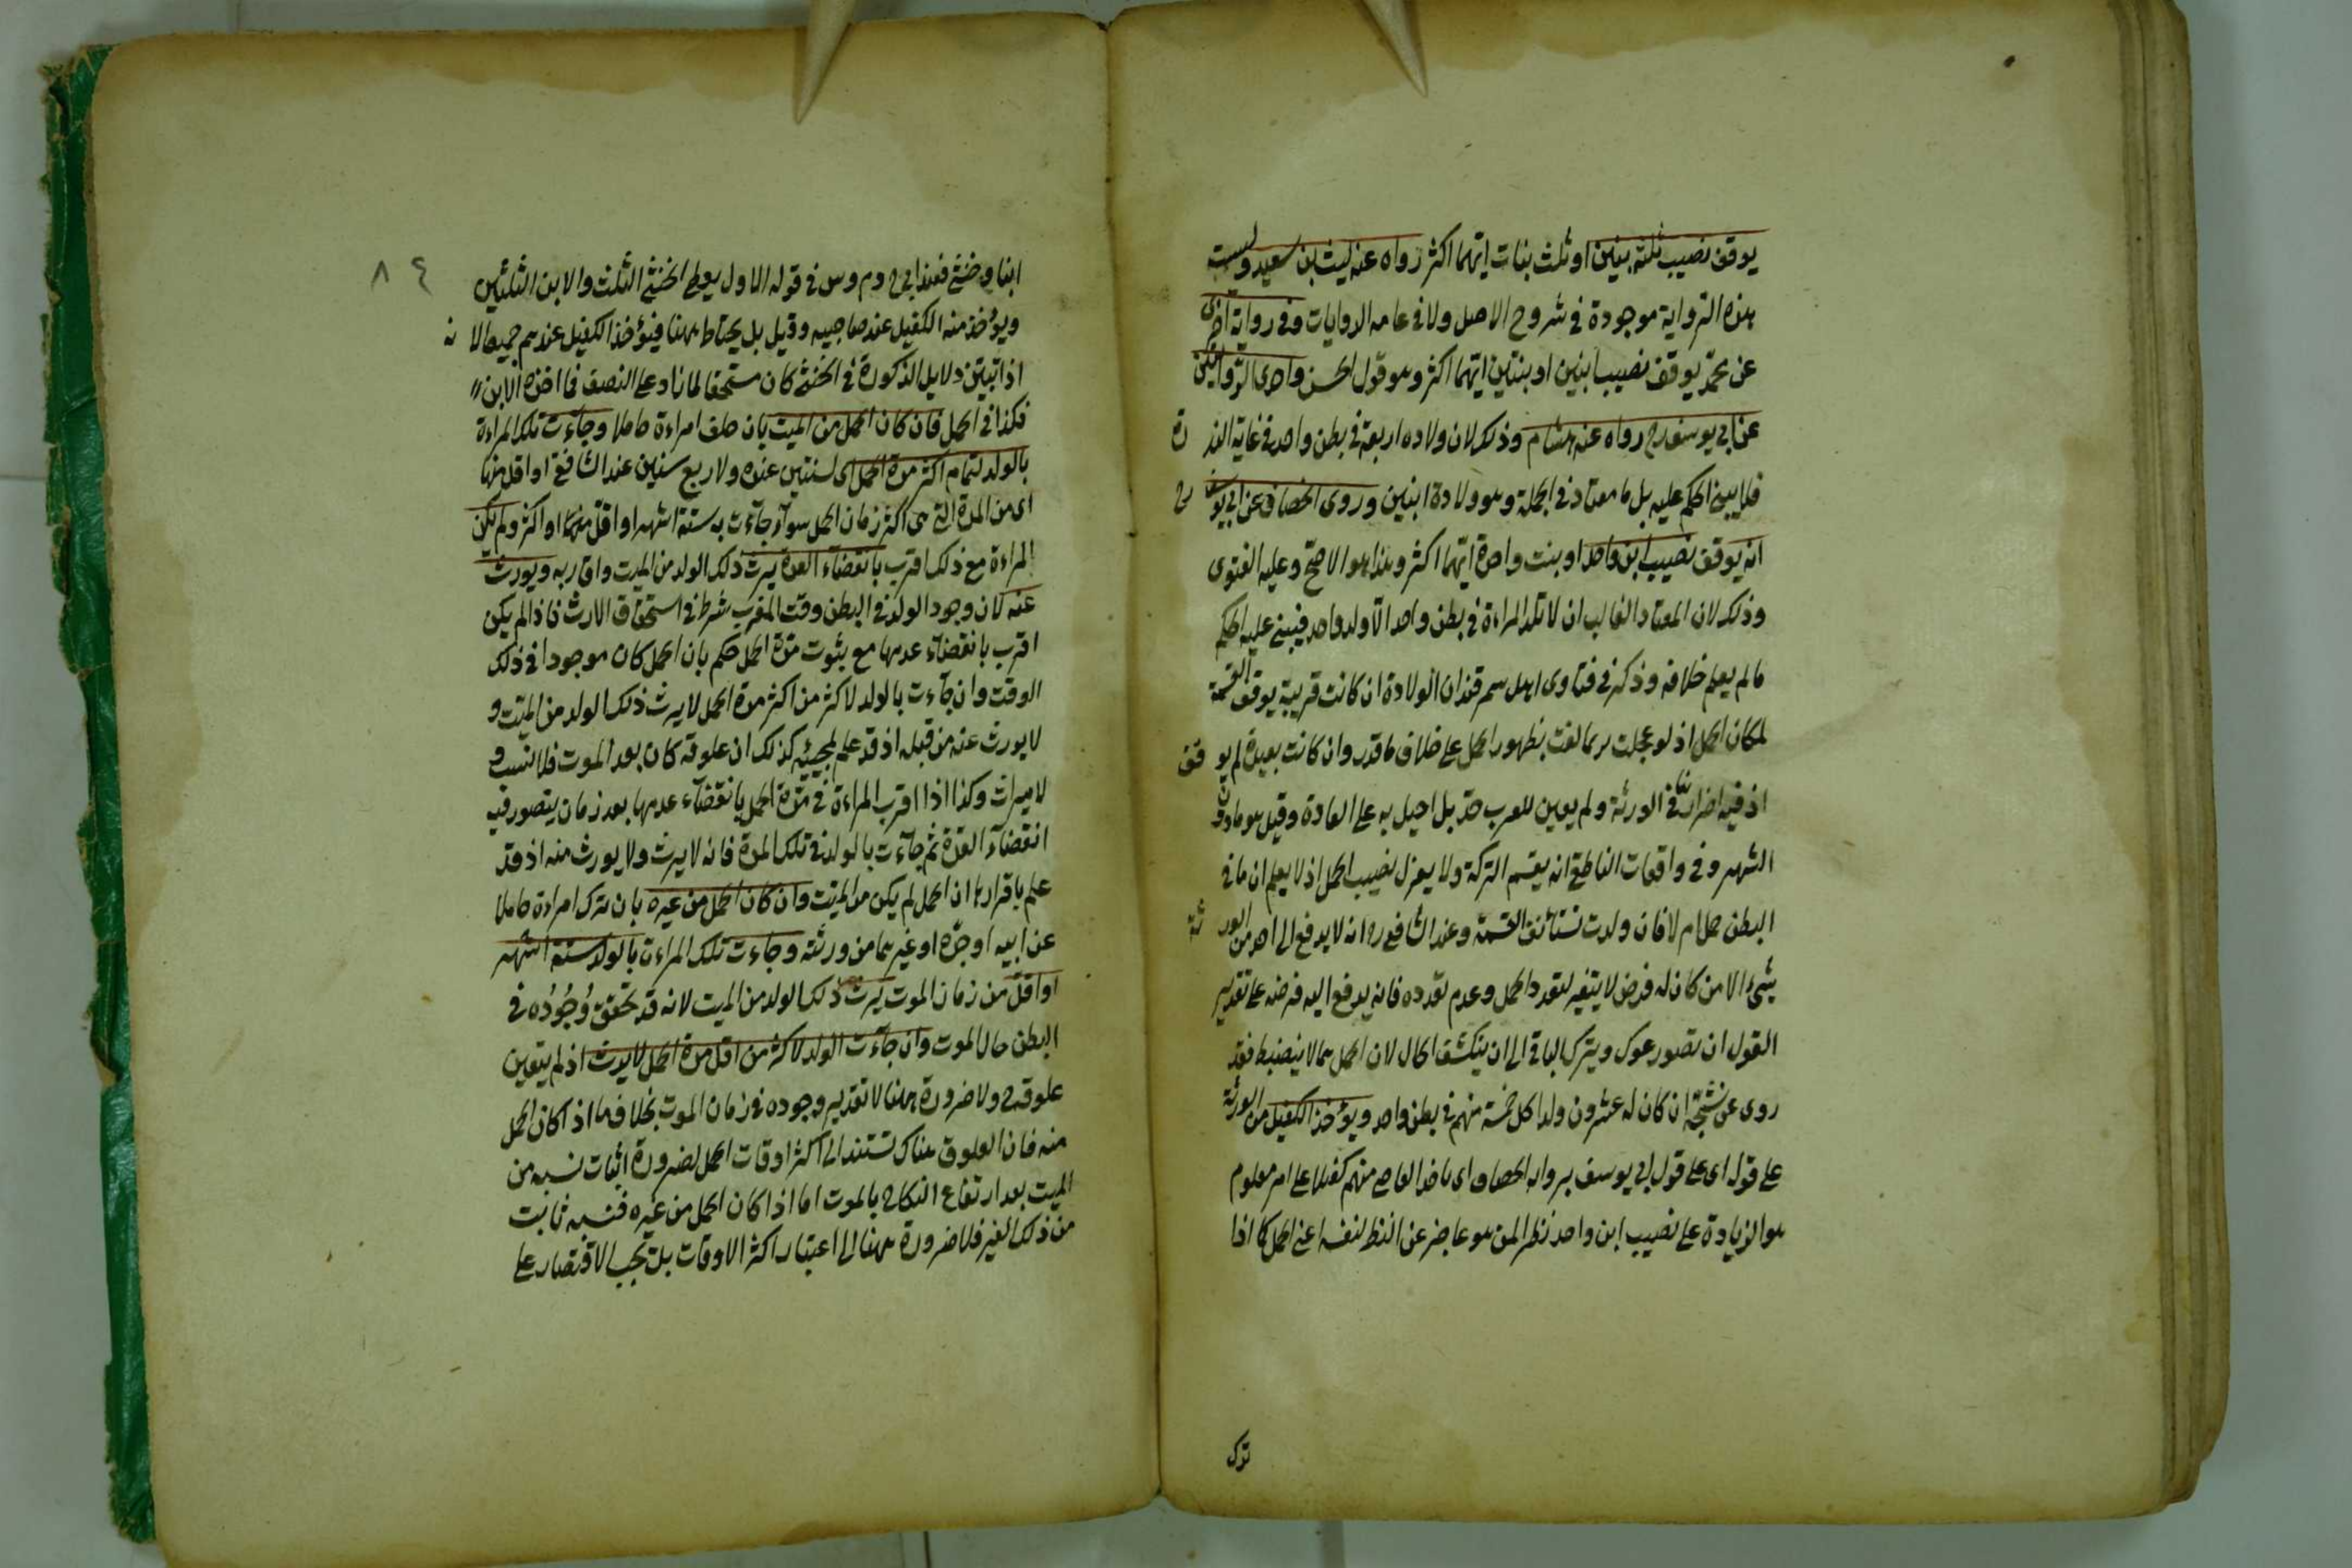 يوقف نصيب ثلثة بنين او ثلث بنات ايهما اكثر رواه عنه ليث بن سعيد وليست
هذه الرواية موجودة في شروح الاصل ولا في عامه الروايات وفي رواية اخرى
عن محمد يوقف نصيب ابنين او بنتين ايهما اكثر وهو قول الحسن واحدى الروايتين
عن ابي يوسف رح رواه عنه هشام وذلك لان ولاده اربعة في بطن واحد في غاية الندرة
فلا يبنى الحكم عليه بل ما معتاد في الجملة وهو ولادة ابنين وروى الخصاف عن ابي يوسف رح
انه يوقف نصيب ابن واحد او بنت واحدة ايهما اكثر وهذا هو الاصح وعليه الفتوى
وذلك لان المعتاد الغالب ان لا تلد المراءة في بطن واحد الا ولد واحد فيبنى عليه الحكم
ما لم يعلم خلافه وذكر في فتاوى اهل سمرقند ان الولادة ان كانت قريبة يوقف القسمة
لمكان الحمل اذ لو عجلت ربما لغت بظهور الحمل على خلاف ما قدر وان كانت بعيدة لم يوقف
اذ فيه اضرار في الورثة ولم يعين للقرب حد بل احيل به على العادة وقيل هو ما دون
الشهر وفي واقعات الناطفى انه يقسم التركة ولا يعزل نصيب الحمل اذ لا يعلم ان ما في
البطن حمل ام لا فان ولدت تستأنف القسمة وعند الشافعى رح انه لا يدفع الى احد من الورثة
شىء الا من كان له فرض لا يتغير بتعدد الحمل وعدم تعدده فانه يدفع اليه فرضه على تقدير
العول ان تصور عول ويترك الباقى الى ان ينكشف الحال لان الحمل مما لا ينضبط فقد
روى عن شيخه ان كان له عشرون ولدا كل خمسة منهم في بطن واحد ويؤخذ الكفيل من الورثة
على قوله اى على قول ابي يوسف برواية الخصاف اى ياخذ القاضى منهم كفيلا على امر معلوم
هو الزيادة على نصيب ابن واحد نظرا لمن هو عاجز عن النظر لنفسه اعنى الحمل كما اذا
ترك
٨٤
ابنا وخنثى فعند ابى ح وم وس في قوله الاول يعطى الخنثى الثلث والابن الثلثين
ويؤخذ منه الكفيل عند صاحبيه وقيل بل يحتاط ههنا فيؤخذ الكفيل عندهم جميعا لانه
اذا تبين دلايل الذكورة في الخنثى كان مستحقا لما زاد على النصف فما اخذه الابن
فكذا في الحمل فان كان الحمل من الميت بان خلف امراءة حاملا وجآءت تلك المراءة
بالولد لتمام اكثر مدة الحمل اى لسنتين عنده ولاربع سنين عند الشافعى او اقل منها
اى من المدة التى هى اكثر زمان الحمل سوآء جآءت به ستة اشهر او اقل منها او اكثر ولم تكن
المراءة مع ذلك اقرب بانقضآء العدة يرث ذلك الولد من الميت واقاربه ويورث
عنه لان وجود الولد في البطن وقت الموت شرط في استحقاق الارث فاذا لم يكن
اقرب بانقضآء عدتها مع ثبوت مدة الحمل حكم بان الحمل كان موجودا في ذلك
الوقت وان جآءت بالولد لاكثر من اكثر مدة الحمل لا يرث ذلك الولد من الميت و
لا يورث عنه من قبله اذ قد علم لمجيئه كذلك ان علوقه كان بعد الموت فلا نسب و
لا ميراث وكذا اذا اقرب المراءة في مدة الحمل بانقضآء عدتها بعد زمان يتصور فيه
انقضآء العدة ثم جآءت بالولد في تلك المدة فانه لا يرث ولا يورث منه اذ قد
علم باقرارها ان الحمل لم يكن من الميت وان كان الحمل من غيره بان ترك امراءة حاملا
عن ابيه او جده او غيرهما من ورثته وجاءت تلك المراءت بالولد لستة اشهر
او اقل من زمان الموت يرث ذلك الولد من الميت لانه قد تحقق وجوده في
البطن حال الموت وان جآءت الولد لاكثر من اقل مدة الحمل لا يرث اذ لم يتعين
علوقه ح ولا ضرورة ههنا لا تقدير وجوده في زمان الموت بخلاف ما اذا كان الحمل
منه فان العلوق هناك تستند الى اكثر اوقات الحمل لضرورة اثبات نسبه من
الميت بعد ارتفاع النكاح بالموت اما اذا كان الحمل من غيره فنسبه ثابت
من ذلك الغير فلا ضرورة ههنا الى اعتبار اكثر الاوقات بل تجب الاقتصار على